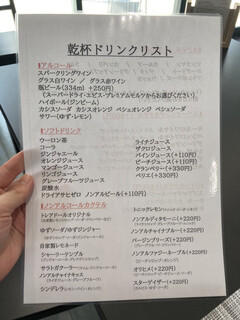 乾杯ドリンクリスト
アルコール
スパークリングワイン
グラス白ワイン / グラス赤ワイン
瓶ビール(334ml) +250円
(スーパードライ・エビス・プレミアムモルツからお選びください)
ハイボール(ジンビーム)
カシスソーダ カシスオレンジ ペシェオレンジ ペシェソーダ
サワー(ゆず・レモン)
ソフトドリンク
ウーロン茶
コーラ
ジンジャエール
オレンジジュース
マンゴージュース
リンゴジュース
グレープフルーツジュース
炭酸水
ドライアサヒゼロ ノンアルビール(+110円)
ライチジュース
ザクロジュース
パインジュース(+110円)
ピーチジュース(+110円)
クランベリー(+330円)
ペリエ(+330円)
ノンアルコールカクテル
トレアドールオリジナル
ゆずソーダ/ゆずジンジャー
自家製レモネード
シャーリーテンプル
サラトガクーラー
ノンアルチャイナキッス
シンデレラ(+220円)
トニックレモン(+220円)
ノンアルディタモーニ(+220円)
ノンアルチャイナブルー(+220円)
バージンブリーズ(+220円)
ノンアルファジーネーブル(+220円)
オリヒメ(+220円)
スターゲイザー(+220円)